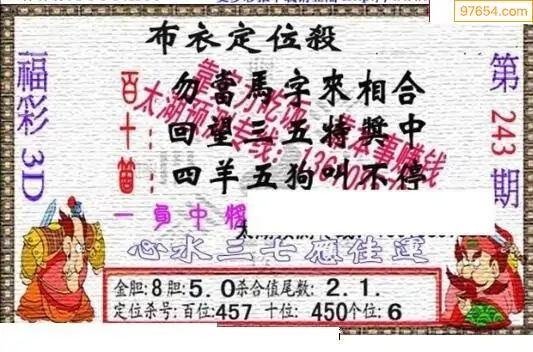 97654.com
布衣定位殺
福彩3D
第243期
百: 勿當馬字來相合
十: 回望三五特獎中
個: 四羊五狗叫不停
一員中獎
心水三七應佳運
金胆:8胆:5.0杀合值尾数: 2.1.
定位杀号:百位:457 十位: 450个位:6